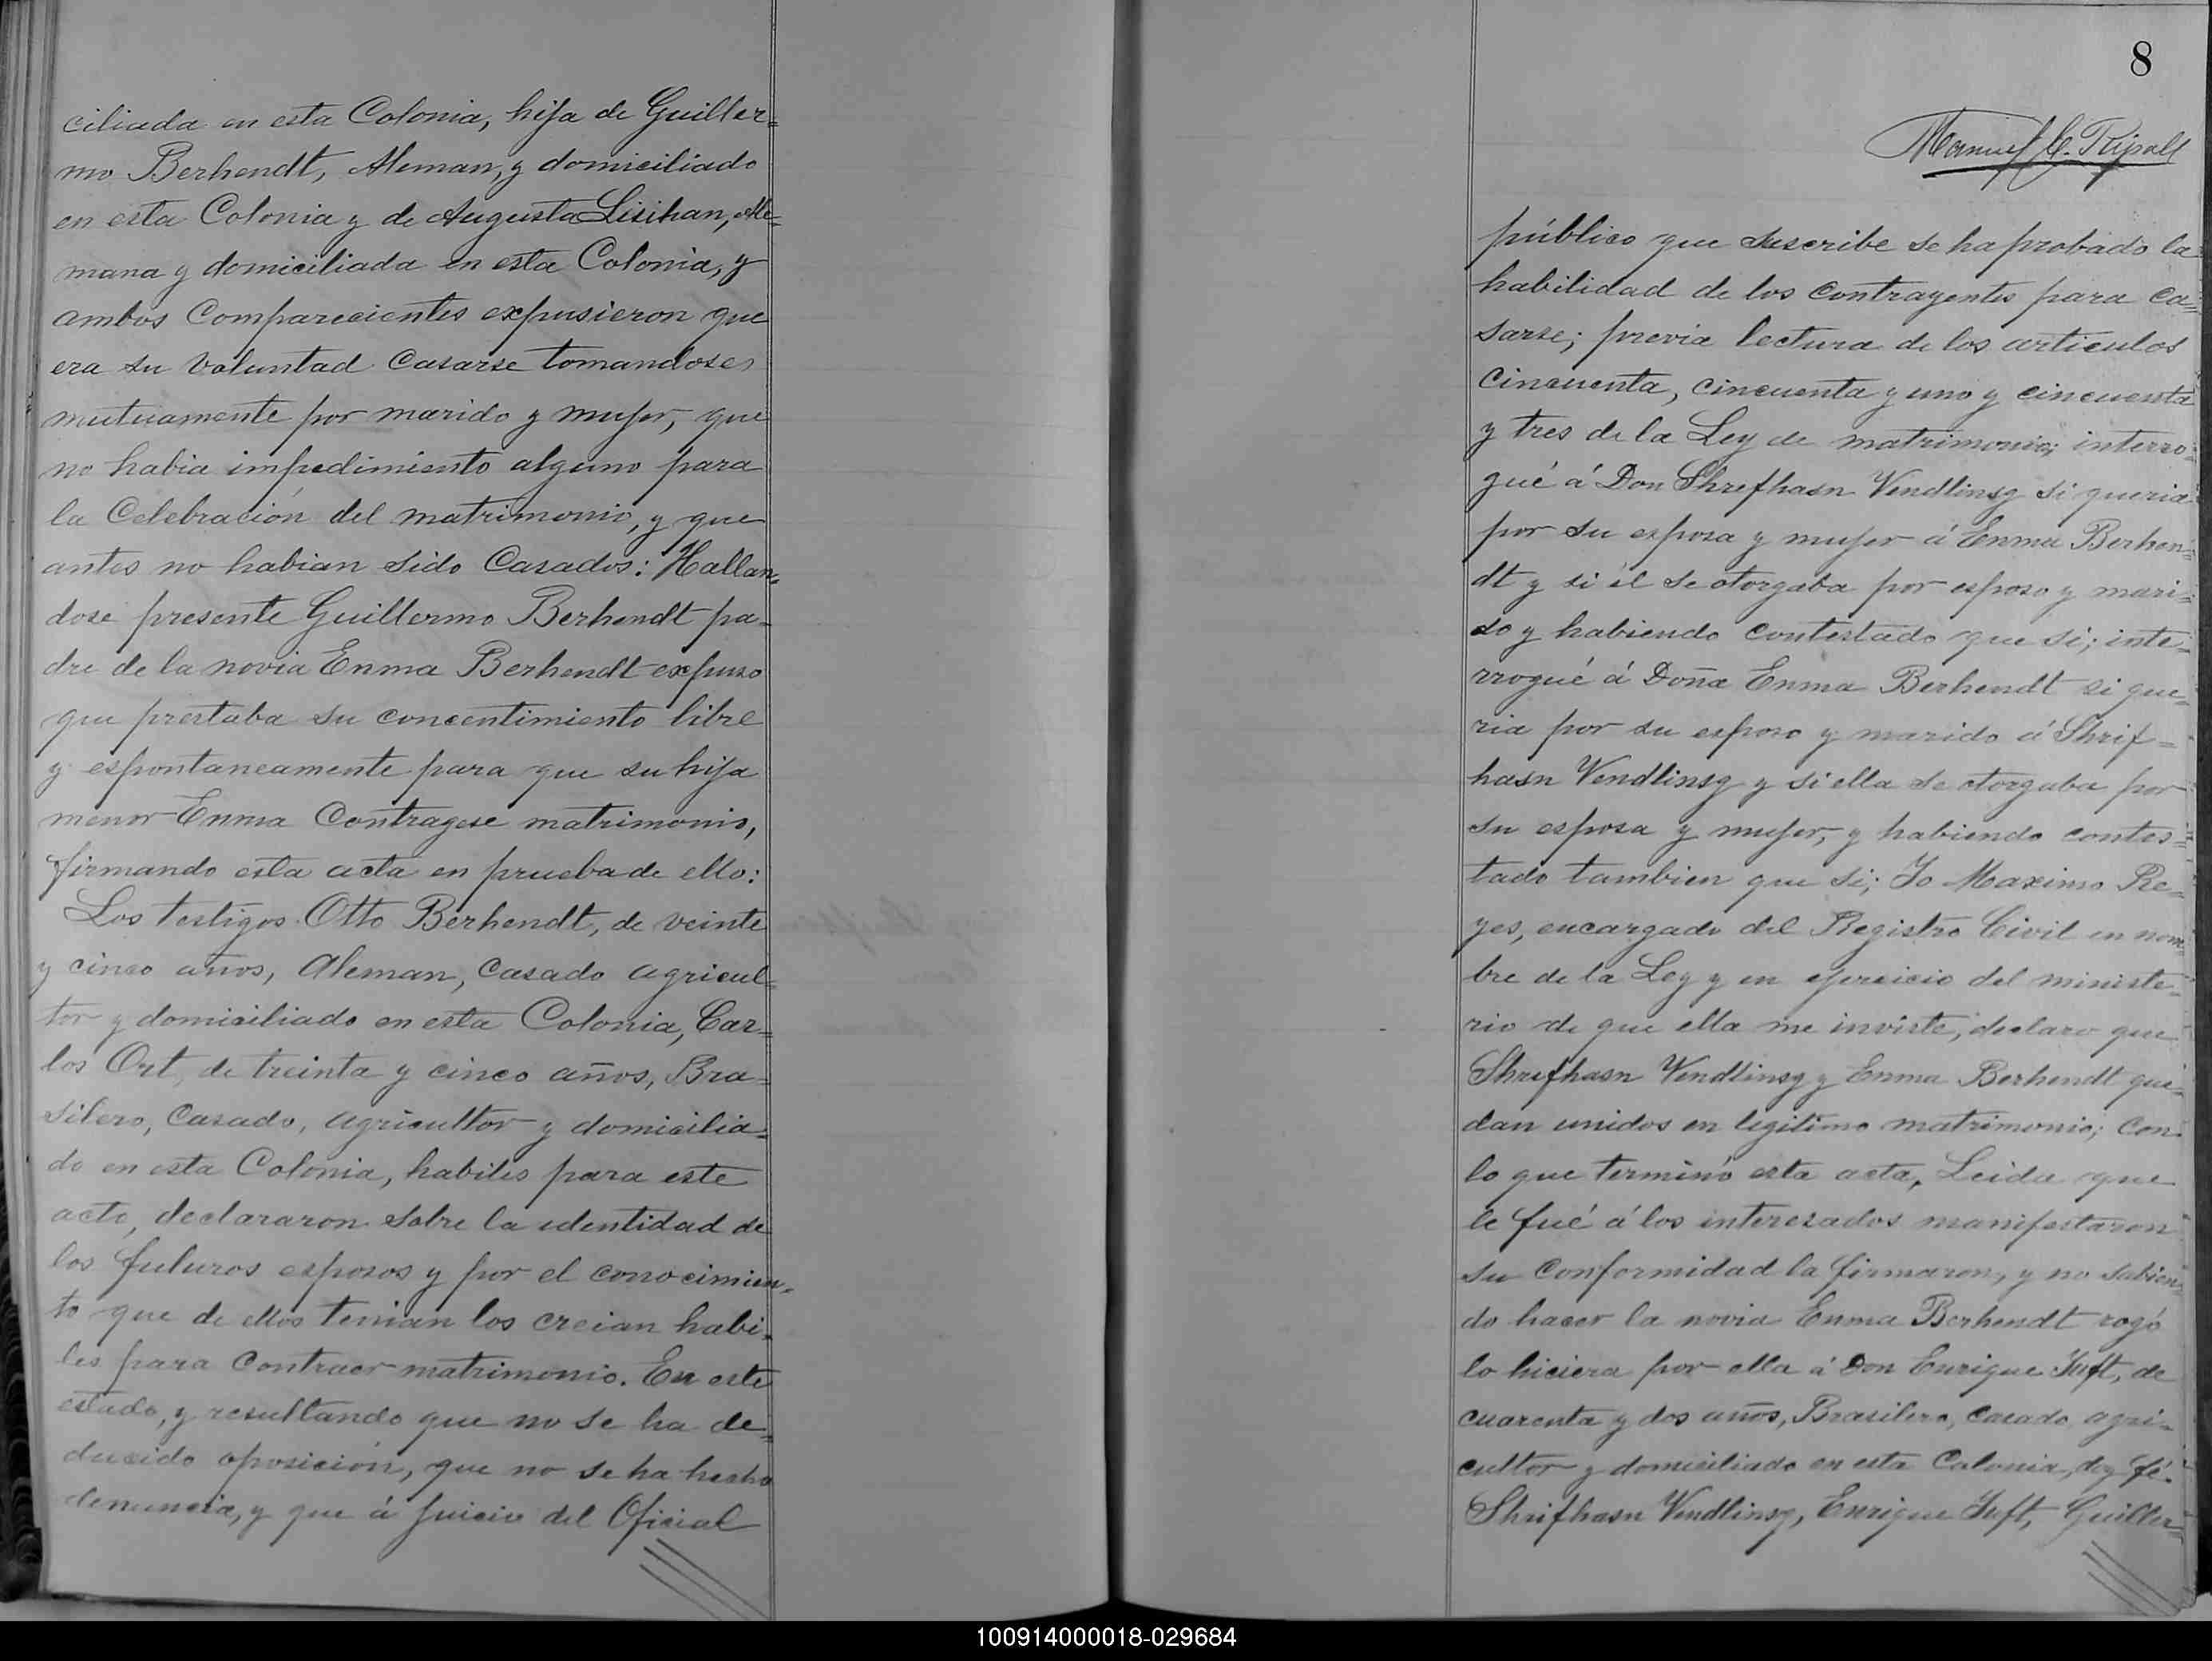 ciliada en esta Colonia, hija de Guiller=
mo Berhendt, Aleman, y domiciliado
en esta Colonia y de Augusta Lisihan, Ale=
mana y domiciliada en esta Colonia, y
ambos Comparecientes expusieron que
era su voluntad Casarse tomandose
mutuamente por marido y mujer, que
no habia impedimiento alguno para
la Celebración del matrimonio, y que
antes no habian sido Casados: Hallan=
dose presente Guillermo Berhendt pa=
dre de la novia Enma Berhendt expuso
que prestaba su concentimiento libre
y espontaneamente para que su hija
menor Enma Contragese matrimonio,
firmando esta acta en prueba de ello:
Los testigos Otto Berhendt, de veinte
y cinco años, Aleman, Casado agricul=
tor y domiciliado en esta Colonia, Car=
los Ort, de treinta y cinco años, Bra=
silero, Casado, agricultor y domicilia=
do en esta Colonia, habiles para este
acto, declararon sobre la identidad de
los futuros esposos y por el conocimien=
to que de ellos tenian los creian habi=
les para Contraer matrimonio. En este
estado, y resultando que no se ha de=
ducido oposición, que no se ha hecho
denuncia, y que á juicio del Oficial
8
Manuel C. Ripoll
público que suscribe se ha probado la
habilidad de los contrayentes para ca=
sarse; previa lectura de los articulos
cincuenta, cincuenta y uno y cincuenta
y tres de la Ley de matrimonio; interro=
gué á Don Shrefhasn Vendlinsg si queria
por su esposa y mujer á Enma Berhen=
dt y si él se otorgaba por esposo y mari=
do y habiendo contestado que si; inte=
rrogué á Doña Enma Berhendt si que=
ria por su esposo y marido á Shrif=
hasn Vendlinsg y si ella se otorgaba por
su esposa y mujer, y habiendo contes=
tado tambien que si; Yo Maximo Re=
yes, encargado del Registro Civil en nom=
bre de la Ley y en ejercicio del ministe=
rio de que ella me inviste, declaro que
Shrefhasn Vendlinsg y Enma Berhendt que=
dan unidos en legitimo matrimonio; Con
lo que terminó esta acta, Leida que
le fué á los interesados manifestaron
su conformidad la firmaron, y no sabien=
do hacer la novia Enma Berhendt rogó
lo hiciera por ella á Don Enrique Juft, de
cuarenta y dos años, Brasilero, casado agri=
cultor y domiciliado en esta Colonia, doy fé.
Shrifhasn Vendlinsg, Enrique Juft, Guiller=
100914000018-029684